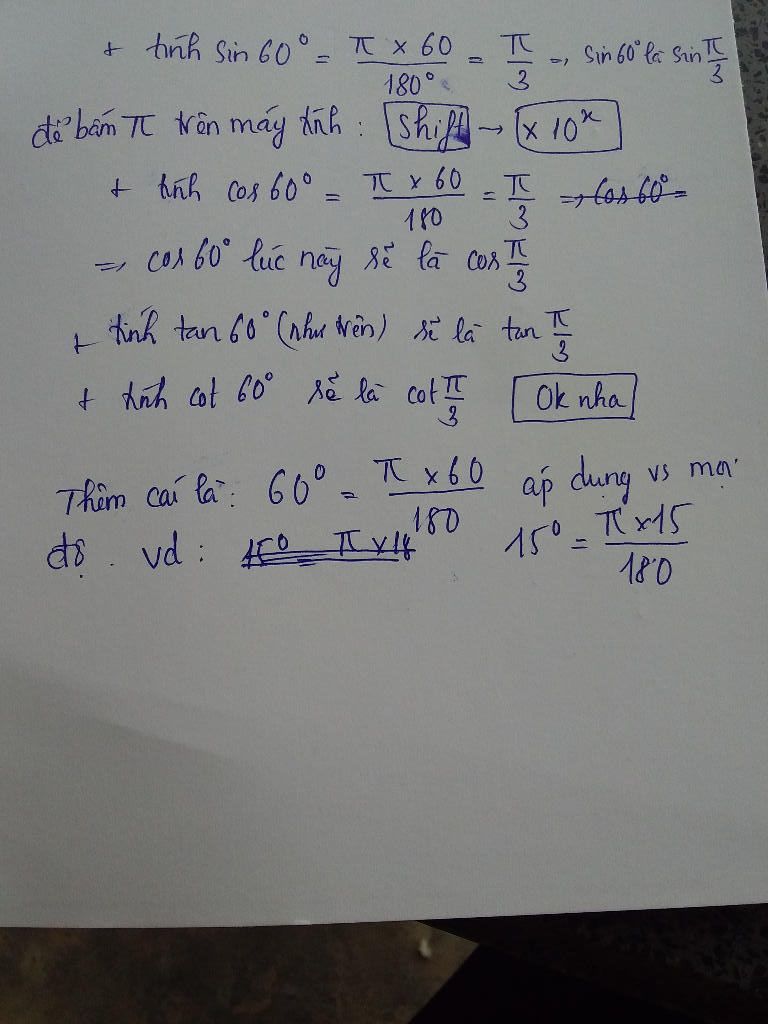 + tính sin 60° = π x 60 / 180° = π/3 => sin 60° là sin π/3
để bấm π trên máy tính : Shift → x 10ˣ
+ tính cos 60° = π x 60 / 180 = π/3 => cos 60° =
=> cos 60° lúc này sẽ là cos π/3
+ tính tan 60° (như trên) sẽ là tan π/3
+ tính cot 60° sẽ là cot π/3 Ok nha
Thêm cái là : 60° = π x 60 / 180 áp dụng vs mọi
độ . vd : 15° π x 18 15° = π x 15 / 180